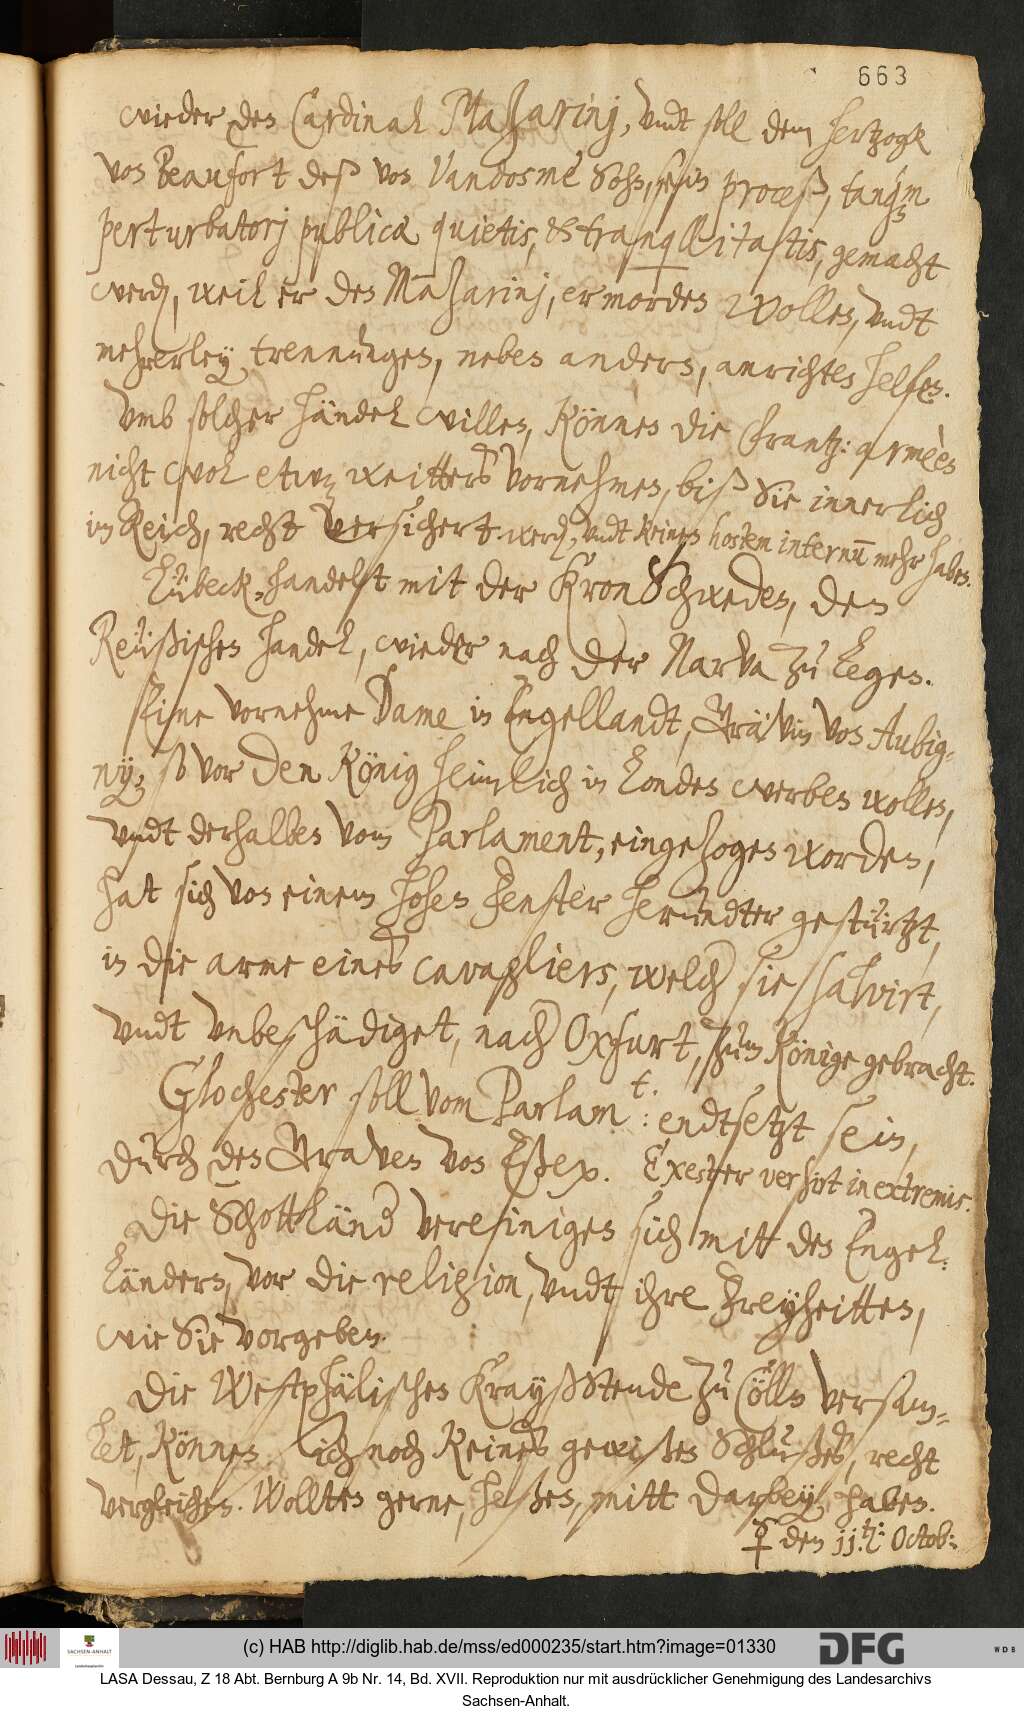 663
wieder den Cardinal Mazarinj, vndt soll dem hertzogk
von Beaufort deß von Vandosme Sohn, sein proceß, tanq̃m
perturbatorj publicæ quietis, & tranquillitatis, gemacht
werd, weil er den Mazarinj, ermorden wollen, vndt
mehrerley trennungen, neben anders, anrichten helfen.
Vmb solcher händel willen, können die frantz: armèen
nicht wol etwz weitters vornehmen, biß Sie innerlich
im Reich, recht versichert werd, vndt keinen hostem internũ mehr haben.
Lübeck, handelt mit der Kron Schweden, den
Reüßischen handel, wieder nach der Narva zu legen.
Eine vornehme Dame in Engellandt, Grävin von Aubig=
nÿ, so vor den König heimlich in Londen werben wollen,
vndt derhalben vom Parlament, eingezogen worden,
hat sich von einem hohen Fenster herundter gestürtzt,
in die arme eines cavaglliers, welcher sie salvirt,
vndt vnbeschädiget, nach Oxfurt, zum Könige gebracht.
Glochester soll vom Parlamt: endtsetzt sein,
durch den Graven von Eßex. Exester versirt in extremis.
Die Schottländer vereiniges sich mitt den Engel=
länders, vor die religion, vndt ihre Freyheitten,
wie Sie vorgeben.
Die Westphälischen KrayßStende zu Cölln versam=
let, können sich noch keines gewißen Schlußes, recht
vergleichen. Wollten gerne, heßen, mitt darbey haben.
♀ den 11.ten: Octob:
(c) HAB http://diglib.hab.de/mss/ed000235/start.htm?image=01330
SACHSEN-ANHALT
DFG
WDB
LASA Dessau, Z 18 Abt. Bernburg A 9b Nr. 14, Bd. XVII. Reproduktion nur mit ausdrücklicher Genehmigung des Landesarchivs
Sachsen-Anhalt.